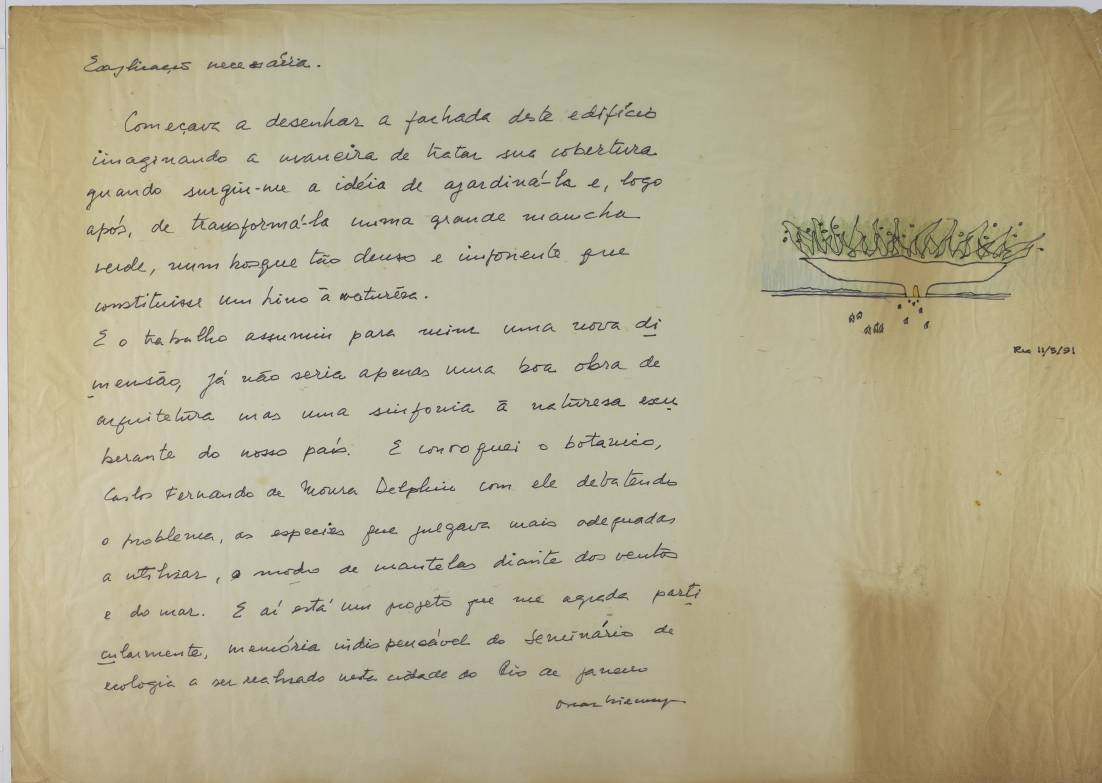 Explicação necessária.
Começava a desenhar a fachada deste edifício
imaginando a maneira de tratar sua cobertura
quando surgiu-me a idéia de ajardiná-la e, logo
após, de transformá-la numa grande mancha
verde, num bosque tão denso e imponente que
constituisse um hino à naturêsa.
E o trabalho assumiu para mim uma nova di
mensão, já não seria apenas uma boa obra de
arquitetura mas uma sinfonia à naturesa exu
berante do nosso país. E convoquei o botanico,
Carlos Fernando de Moura Delphim com ele debatendo
o problema, as especies que julgava mais adequadas
a utilizar, o modo de mantelas diante dos ventos
e do mar. E aí está um projeto que me agrada parti
cularmente, memória indispensável do Seminário de
ecologia a ser realizado nesta cidade do Rio de janeiro
Oscar Niemeyer
Rio 11/5/91